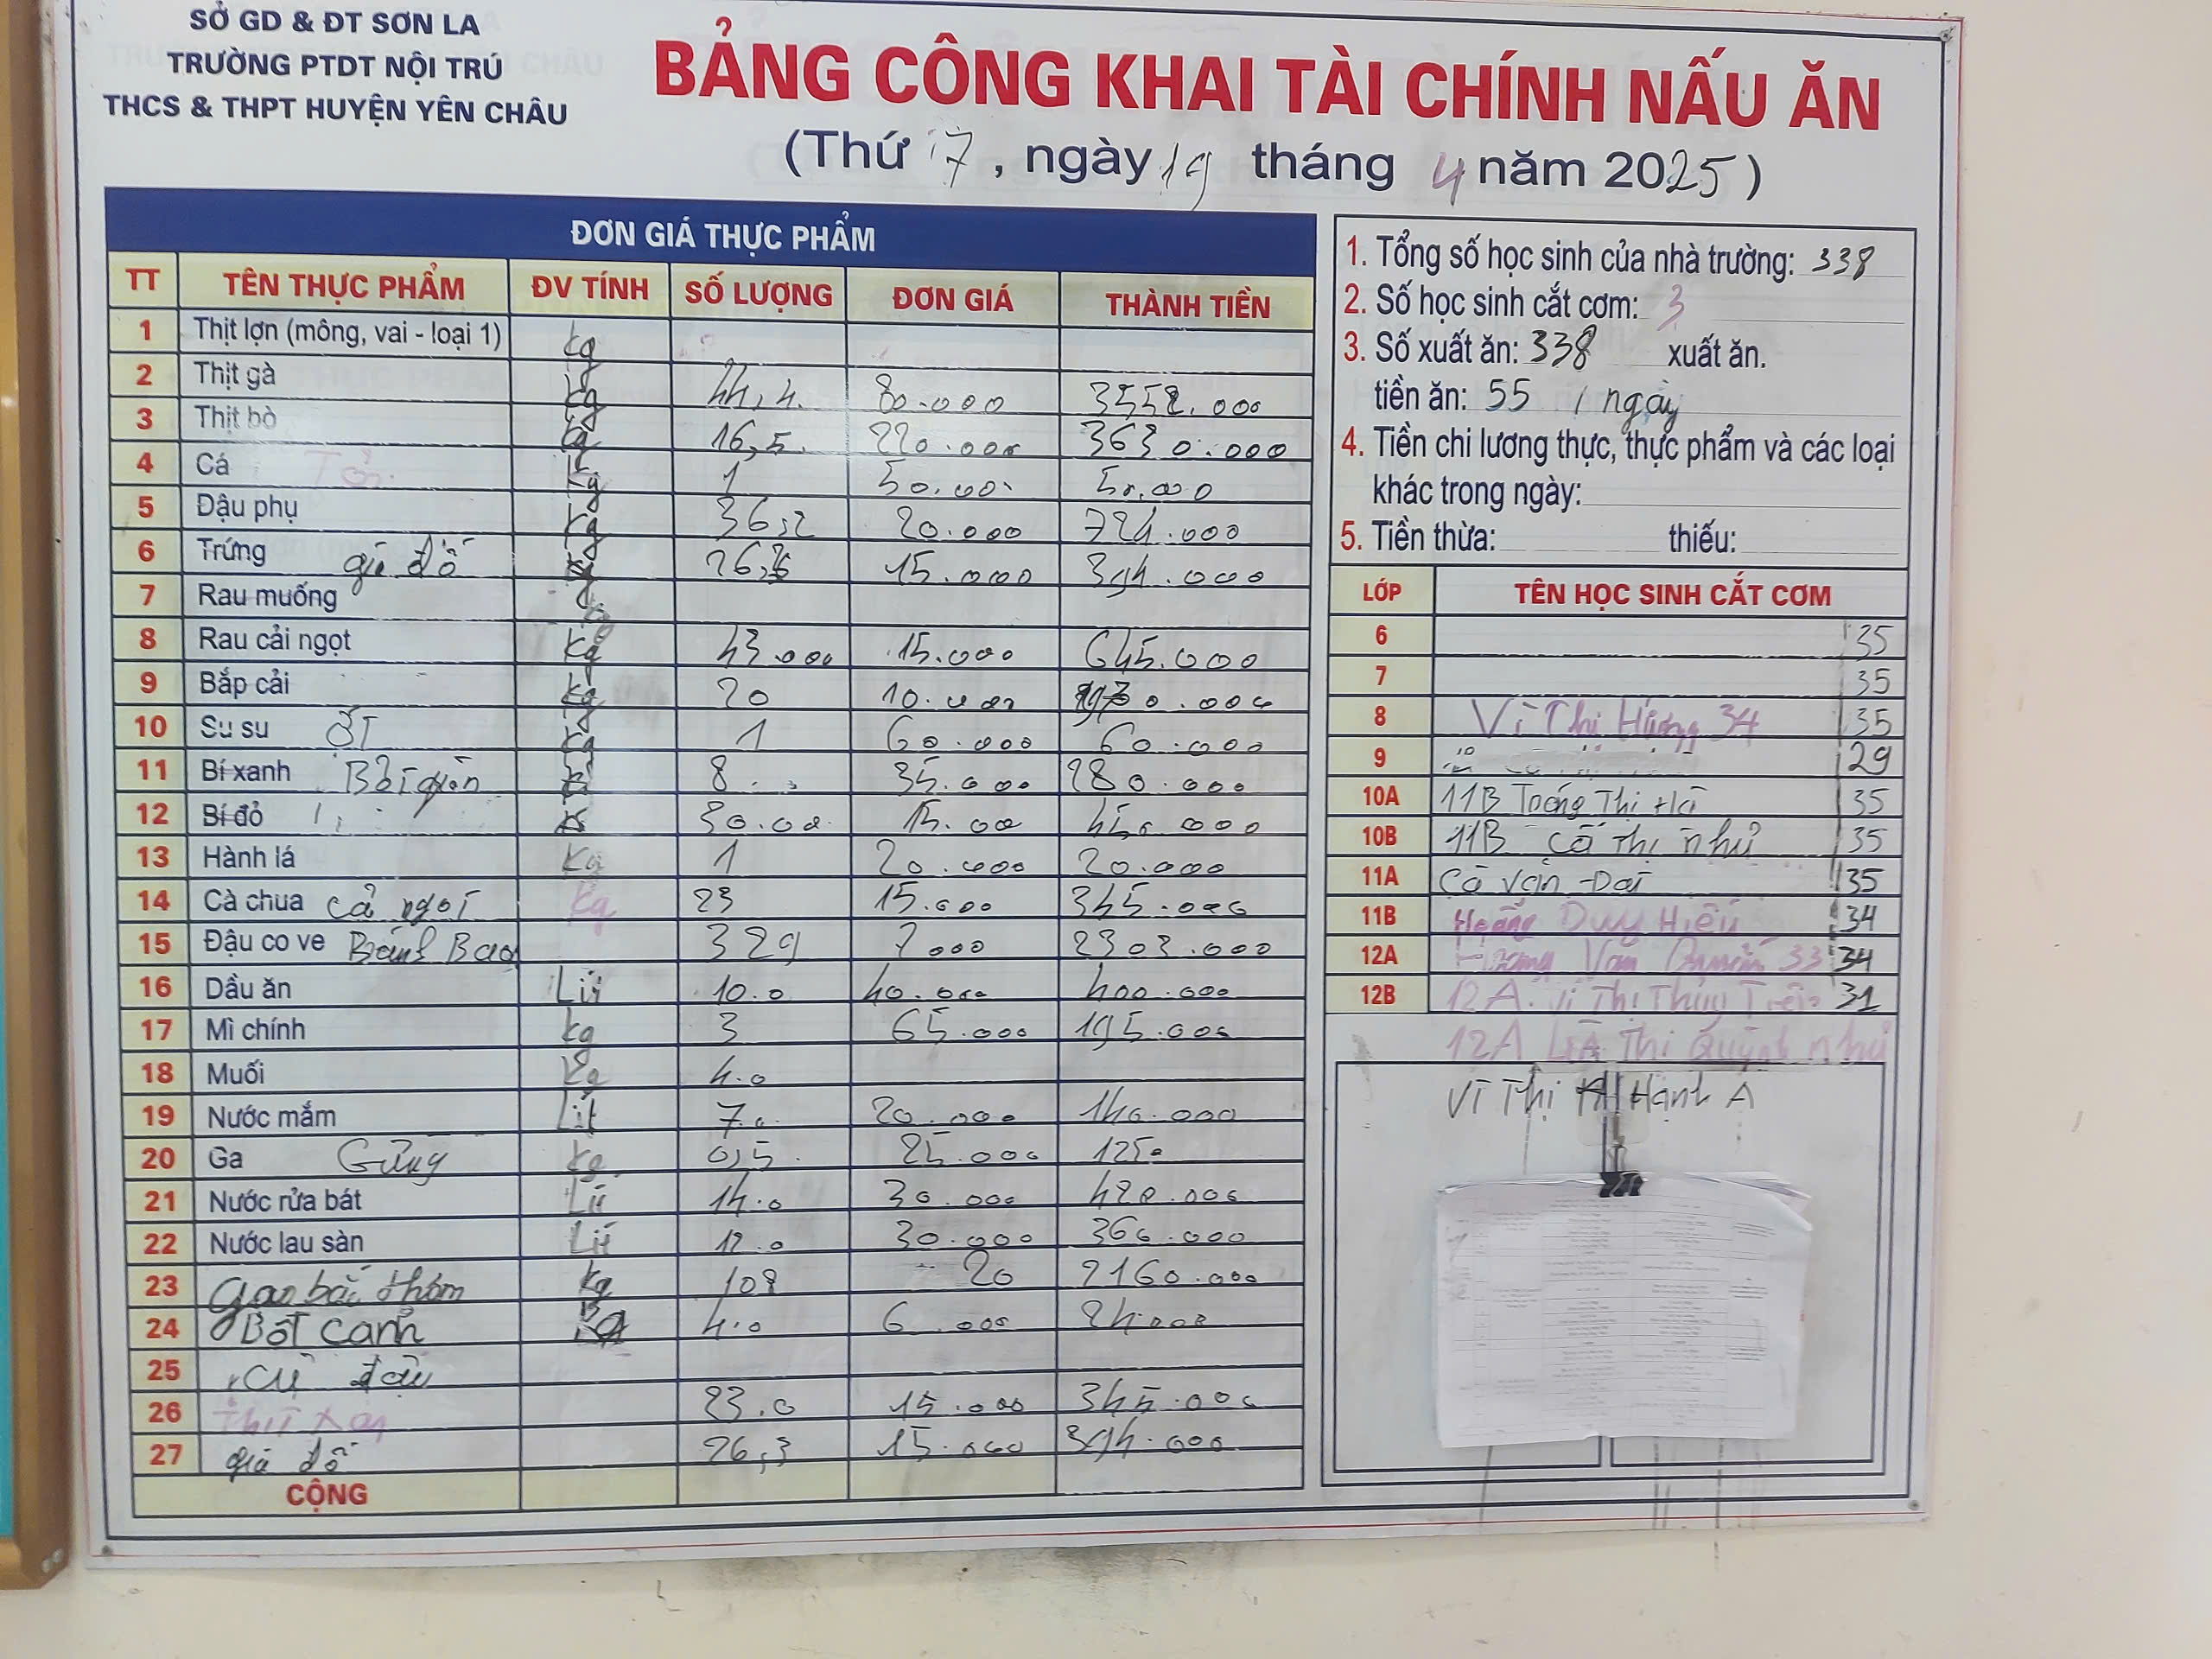 SỞ GD & ĐT SƠN LA
TRƯỜNG PTDT NỘI TRÚ
THCS & THPT HUYỆN YÊN CHÂU
BẢNG CÔNG KHAI TÀI CHÍNH NẤU ĂN
(Thứ 7, ngày 19 tháng 4 năm 2025)
ĐƠN GIÁ THỰC PHẨM
TT TÊN THỰC PHẨM ĐV TÍNH SỐ LƯỢNG ĐƠN GIÁ THÀNH TIỀN
1 Thịt lợn (mông, vai - loại 1) kg
2 Thịt gà kg 44,4 80.000 3552.000
3 Thịt bò kg 16,5 220.000 3630.000
4 Cá Tỏi kg 1 50.000 50.000
5 Đậu phụ kg 36,2 20.000 724.000
6 Trứng giá đỗ 26,3 15.000 394.000
7 Rau muống
8 Rau cải ngọt kg 43.000 15.000 645.000
9 Bắp cải kg 20 10.000
10 Su su ớt kg 1 60.000 60.000
11 Bí xanh 8 35.000 280.000
12 Bí đỏ 30.00 15.00 450.000
13 Hành lá kg 1 20.000 20.000
14 Cà chua cả ngọt kg 23 15.000 345.000
15 Đậu co ve Bánh Bao 329 7000 2303.000
16 Dầu ăn Lít 10.0 40.000 400.000
17 Mì chính kg 3 65.000 195.000
18 Muối kg 4.0
19 Nước mắm Lít 7.0 20.000 140.000
20 Ga Gừng kg 0,5 25.000 1250
21 Nước rửa bát Lít 14.0 30.000 420.000
22 Nước lau sàn Lít 12.0 30.000 360.000
23 Gạo bắc thơm kg 108 20 2160.000
24 Bột canh 4.0 6.000 24000
25 củ đậu
26 23.0 15.000 345.000
27 giá đỗ 26,3 15.000 394.000
CỘNG
1. Tổng số học sinh của nhà trường: 338
2. Số học sinh cắt cơm: 3
3. Số xuất ăn: 338 xuất ăn.
tiền ăn: 55 / ngày
4. Tiền chi lương thực, thực phẩm và các loại
khác trong ngày:
5. Tiền thừa: thiếu:
LỚP TÊN HỌC SINH CẮT CƠM
6 35
7 35
8 Vì Thị Hương 34 35
9 29
10A 11B Toóng Thị Hà 35
10B 11B Cà Thị Như 35
11A Cà Văn Đại 35
11B Hoàng Duy Hiếu 34
12A Hoàng Văn 33 34
12B 12A. Vì Thị Thủy Tiên 31
12A Thị Quỳnh Như
Vì Thị Hạnh A